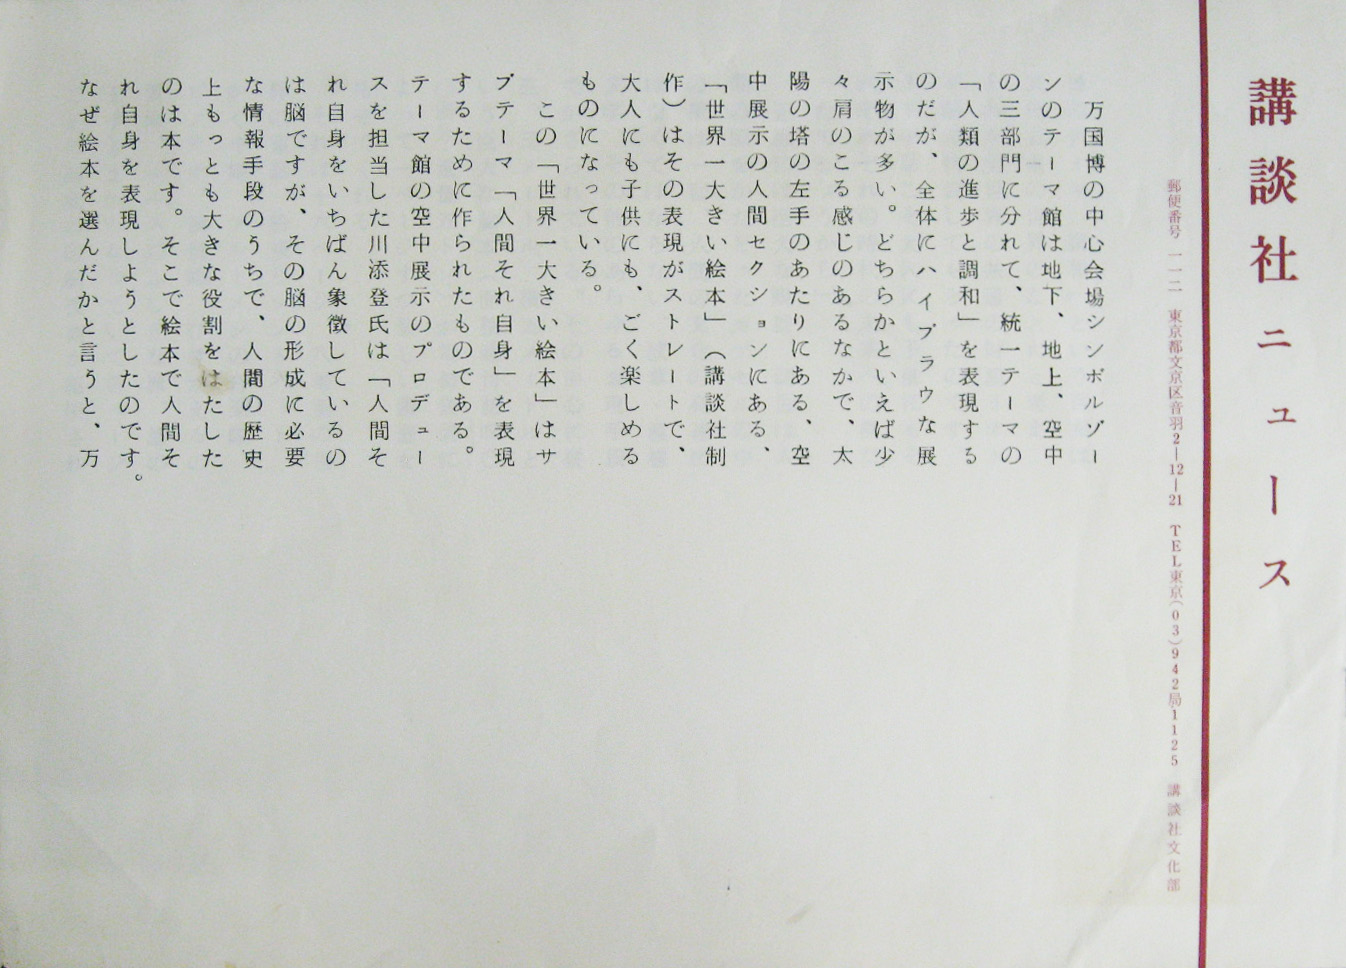 講談社ニュース
郵便番号 一一二 東京都文京区音羽2―12―21 TEL東京(03)942局1125 講談社文化部
万国博の中心会場シンボルゾー
ンのテーマ館は地下、地上、空中
の三部門に分れて、統一テーマの
「人類の進歩と調和」を表現する
のだが、全体にハイブラウな展
示物が多い。どちらかといえば少
々肩のこる感じのあるなかで、太
陽の塔の左手のあたりにある、空
中展示の人間セクションにある、
「世界一大きい絵本」(講談社制
作)はその表現がストレートで、
大人にも子供にも、ごく楽しめる
ものになっている。
この「世界一大きい絵本」はサ
ブテーマ「人間それ自身」を表現
するために作られたものである。
テーマ館の空中展示のプロデュー
スを担当した川添登氏は「人間そ
れ自身をいちばん象徴しているの
は脳ですが、その脳の形成に必要
な情報手段のうちで、人間の歴史
上もっとも大きな役割をはたした
のは本です。そこで絵本で人間そ
れ自身を表現しようとしたのです。
なぜ絵本を選んだかと言うと、万